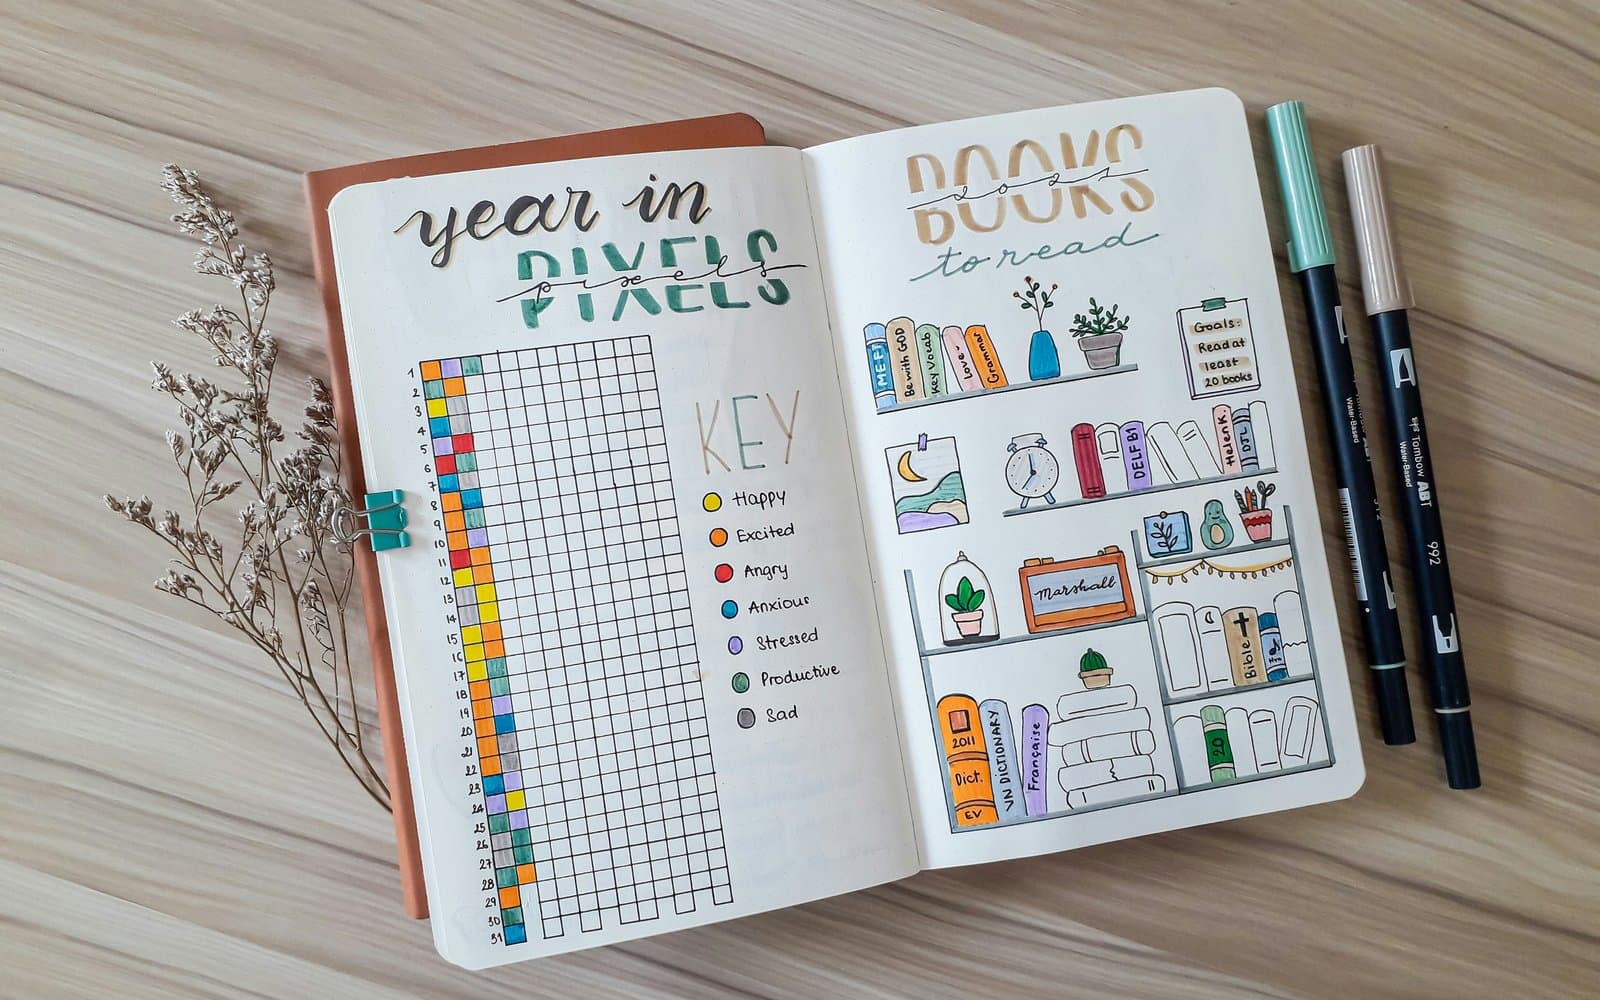 year in
PIXELS
pixels
1
2
3
4
5
6
7
8
9
10
11
12
13
14
15
16
17
18
19
20
21
22
23
24
25
26
27
28
29
30
31
KEY
Happy
Excited
Angry
Anxious
Stressed
Productive
Sad
BOOKS
2021
to read
Be with GOD
Key Vocab
Love
Grammar
Goals:
Read at
least
20 books
DELF B1
Helen K.
Marshall
Bible
2011
Dict.
EV
VN DICTIONARY
Française
20
Tombow ABT
Water-Based
992
Water-Based